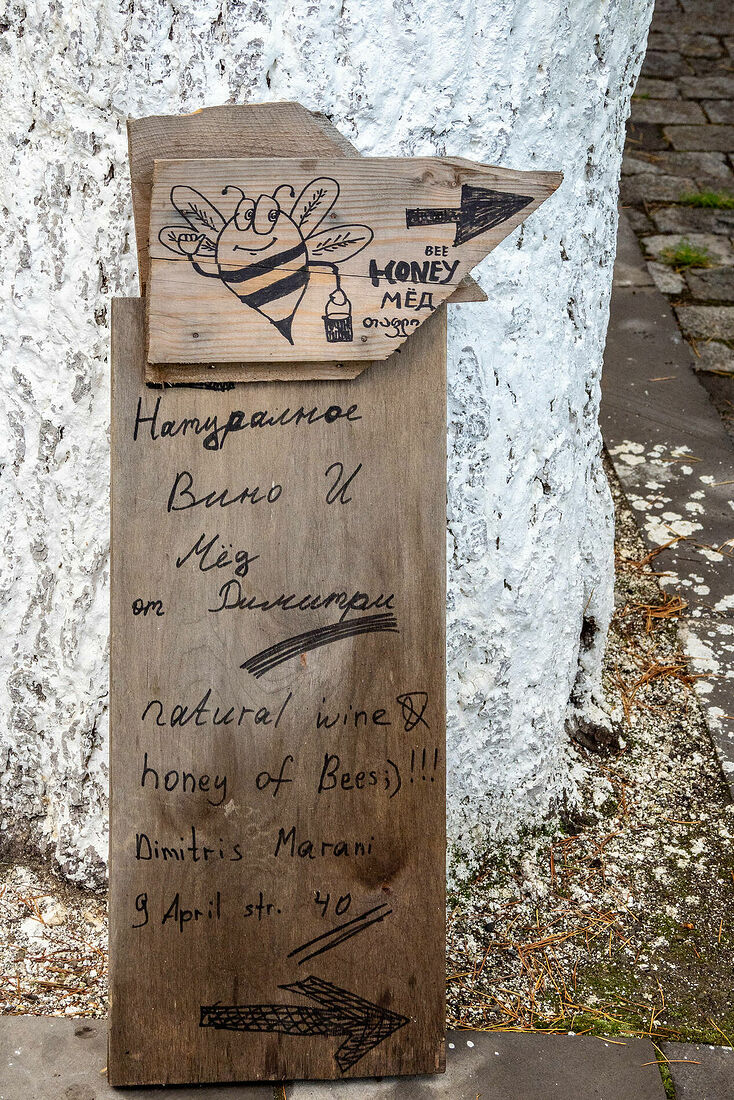 BEE
HONEY
МЁД
თაფლი
Натуралное
Вино И
Мёд
от Димитри
natural wine &
honey of Bees;)!!!
Dimitris Marani
9 April str. 40